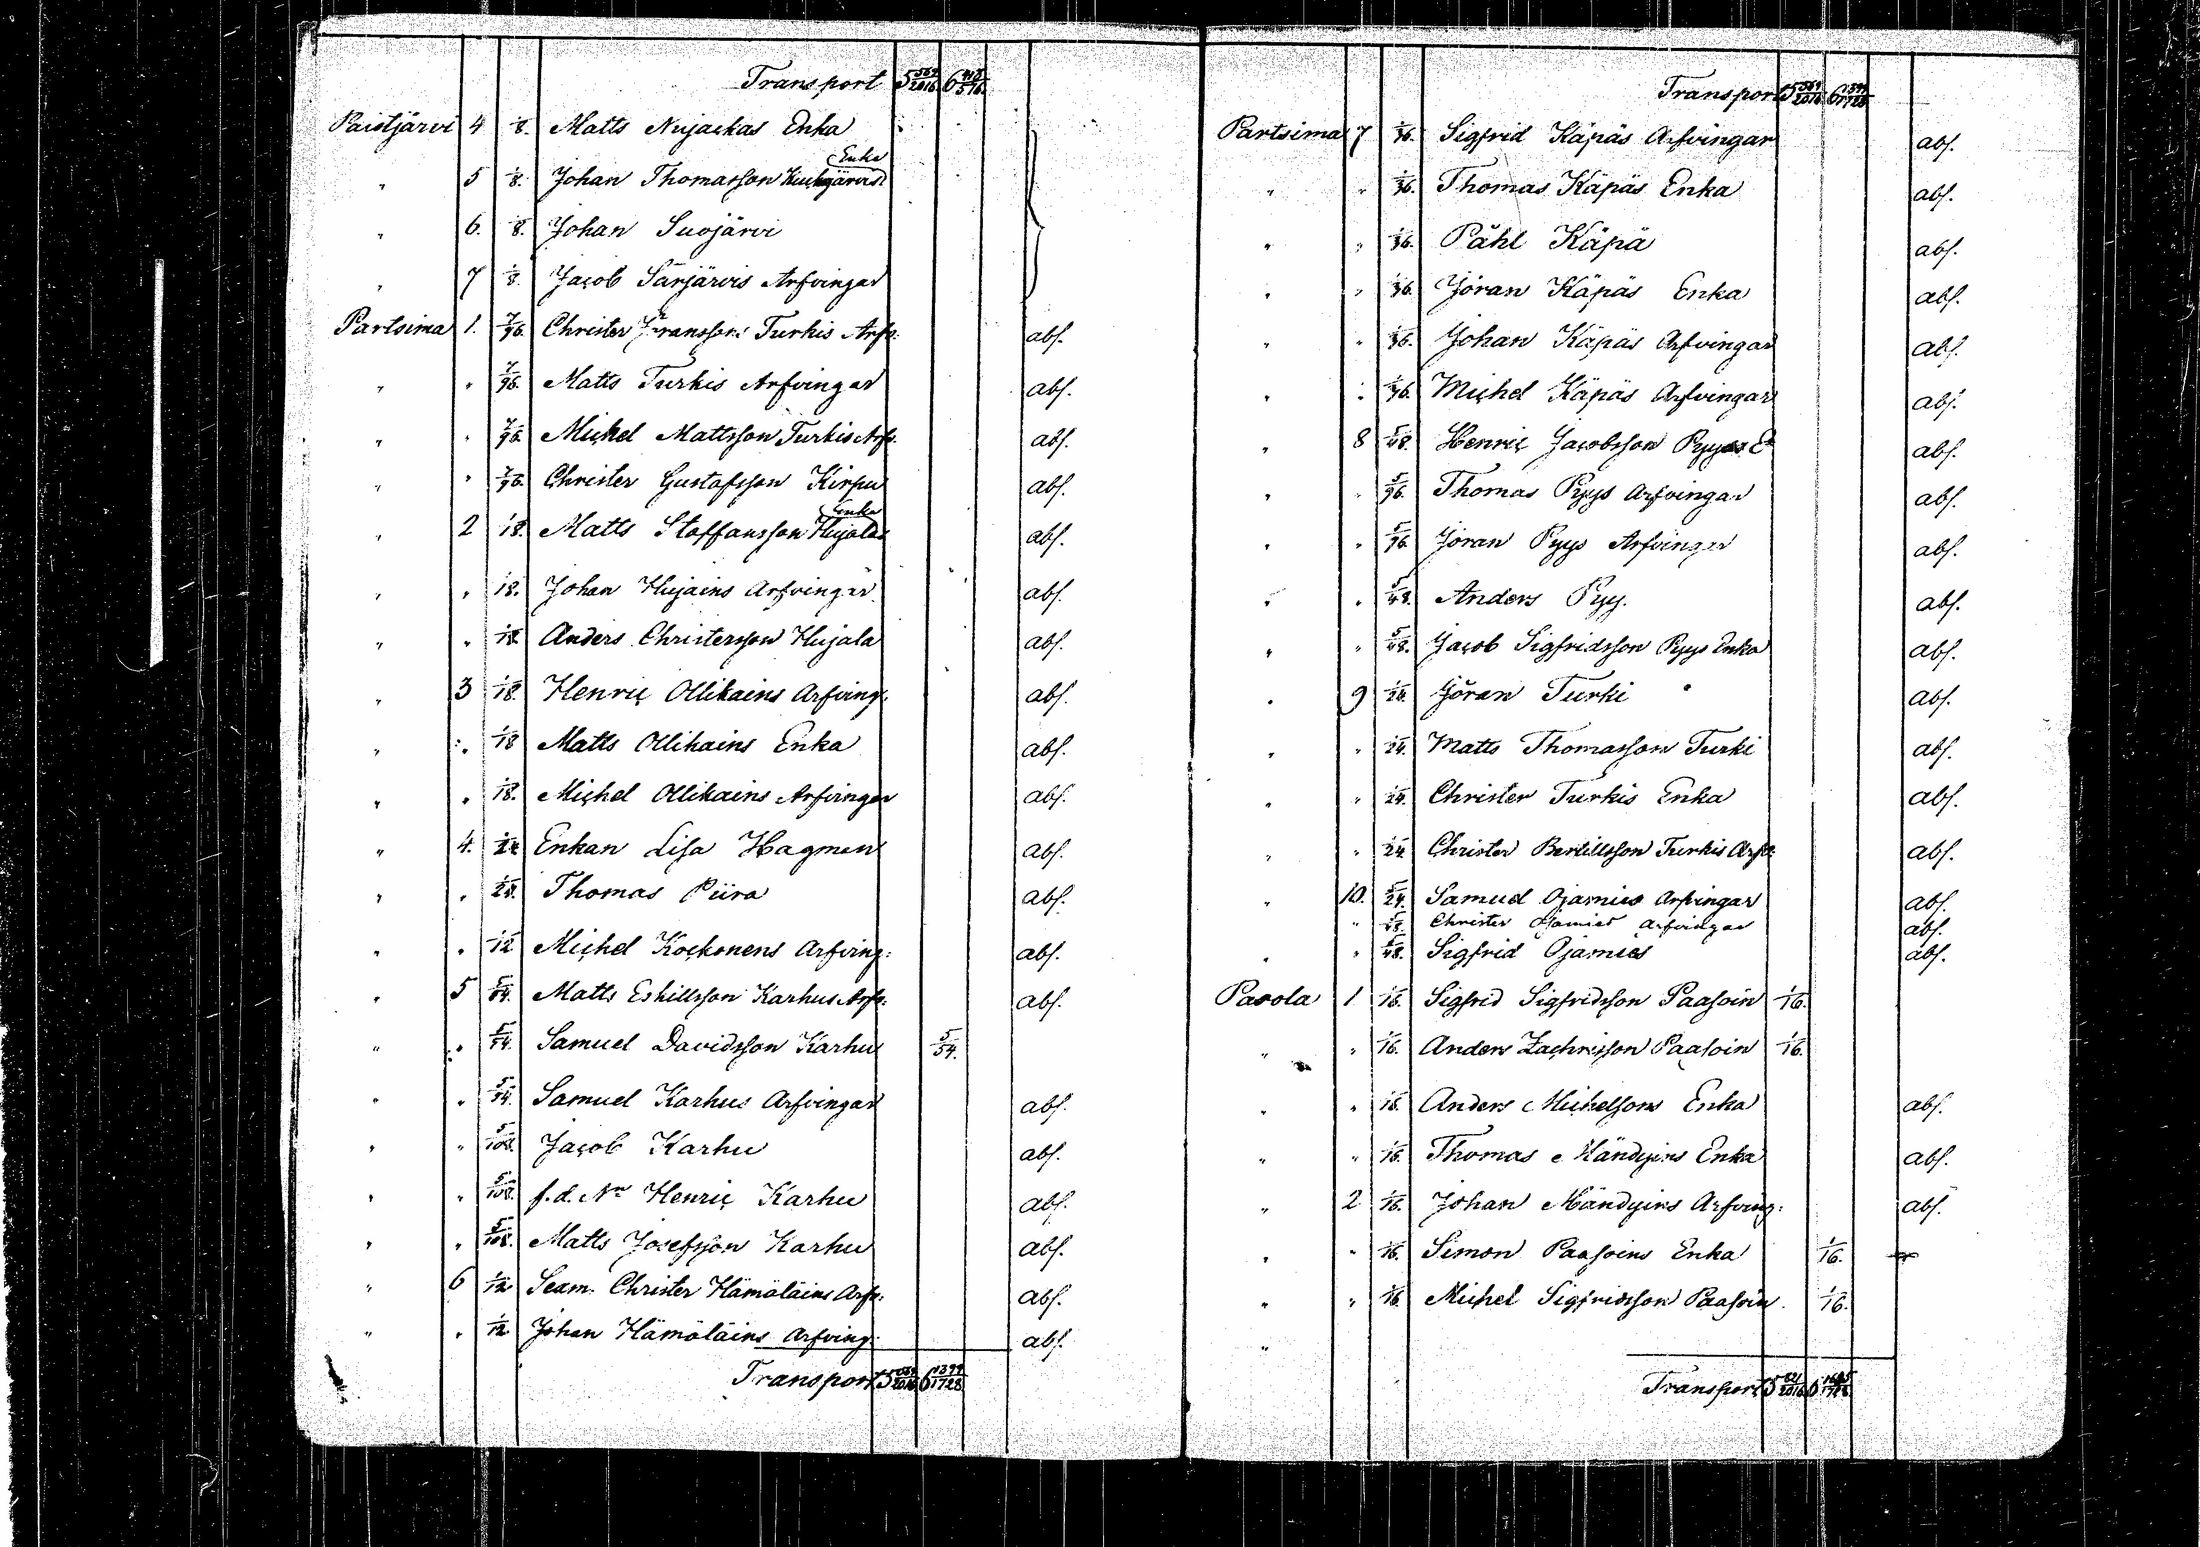 Transport 5 569/2016 6
Paistjärvi 4 1/8. Matts Nujackas Enka
" 5 1/8. Johan Thomasson Enka
" 6. 1/8. Johan Suojärvi
" 7 1/8. Jacob Särjärvis Arfvingar
Partsima 1. 7/96. Christer Turkis Arfv: abs.
" " 7/96. Matts Turkis Arfvingar abs.
" " 7/96. Michel Mattsson Turkis Arfv. abs.
" " 7/96. Christer Gustafsson Kirpu abs.
" 2 1/18. Matts Staffansson Hujalas Enka abs.
" " 1/18. Johan Hujains Arfvingar abs.
" " 1/18. Anders Christersson Hujala abs.
" 3 1/18. Henric Ollikains Arfving: abs.
" " 1/18 Matts Ollikains Enka abs.
" " 1/18. Michel Ollikains Arfvingar abs.
" 4. 1/24 Enkan Lisa Hagman abs.
" " 1/24. Thomas Piira abs.
" " 1/12 Michel Kockonens Arfving: abs.
" 5 5/54. Matts Eskillsson Karhus Arfv: abs.
" " 5/54. Samuel Davidsson Karhu 5/54.
" " 5/54. Samuel Karhus Arfvingar abs.
" " 5/108. Jacob Karhu abs.
" " 5/108. f.d. Nn Henric Karhu abs.
" " 5/108. Matts Josefsson Karhu abs.
" 6 1/12 Seam. Christer Hämöläins Arfv: abs.
" " 1/12 Johan Hämöläins Arfving: abs.
Transport 5 569/2016 6 1399/1728
Transport 5 569/2016 6 1399/1728
Partsima 7 1/36. Sigfrid Käpäs Arfvingar abs.
" " 1/36. Thomas Käpäs Enka abs.
" " 1/36. Påhl Käpä abs.
" " 1/36. Jöran Käpäs Enka abs.
" " 1/36. Johan Käpäs Arfvingar abs.
" " 1/36. Michel Käpäs Arfvingar abs.
" 8 5/48. Henric Jacobsson Pyys Ea abs.
" " 5/96. Thomas Pyys Arfvingar abs.
" " 5/96. Jöran Pyys Arfvingar abs.
" " 5/48. Anders Pyy. abs.
" " 5/48. Jacob Sigfridsson Pyys Enka abs.
" 9 1/24. Jöran Turki abs.
" " 1/24. Matts Thomasson Turki abs.
" " 1/24. Christer Turkis Enka abs.
" " 1/24 Christer Bertillsson Turkis Arfv: abs.
" 10. 5/24. Samuel Ojamies Arfvingar abs.
" 5/48. Christer Ojamies Arfvingar abs.
" " 5/48. Sigfrid Ojamies abs.
Pasola 1 1/16. Sigfrid Sigfridsson Paasoin 1/16.
" " 1/16. Anders Zachrisson Paasoin 1/16.
" " 1/16. Anders Michelsons Enka abs.
" " 1/16. Thomas Mändyins Enka abs.
" 2 1/16. Johan Mändyins Arfving: abs.
" " 1/16. Simon Paasoins Enka 1/16.
" " 1/16 Michel Sigfridsson Paasoin. 1/16.
"
Transport 5 2016 6